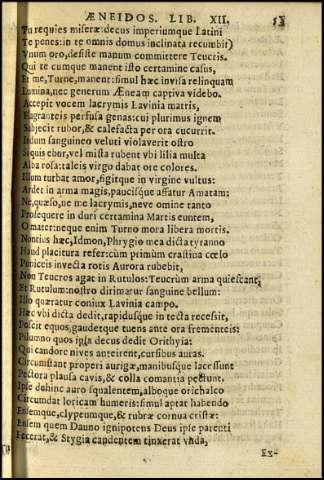 ÆNEIDOS. LIB. XII. 53
Tu requies miseræ: decus imperiumque Latini
Te penes: in te omnis domus inclinata recumbit)
Vnum oro, desiste manum committere Teucris.
Qui te cumque manent isto certamine casus,
Et me, Turne, manent: simul hæc invisa relinquam
Lumina, nec generum Æneam captiva videbo.
Accepit vocem lacrymis Lavinia matris,
Flagranteis perfusa genas: cui plurimus ignem
Subjecit rubor, & calefacta per ora cucurrit.
Indum sanguineo veluti violaverit ostro
Si quis ebur, vel mista rubent vbi lilia multa
Alba rosa: taleis virgo dabat ore colores.
Illum turbat amor, figitque in virgine vultus:
Ardet in arma magis, paucisque affatur Amatam:
Ne, quæso, ne me lacrymis, neve omine tanto
Prosequere in duri certamina Martis euntem,
O mater: neque enim Turno mora libera mortis.
Nontius hæc, Idmon, Phrygio mea dicta tyranno
Haud placitura refer: cùm primùm crastina cœlo
Puniceis invecta rotis Aurora rubebit,
Non Teucros agat in Rutulos: Teucrûm arma quiescant,
Et Rutulûm: nostro dirimatur sanguine bellum:
Illo quæratur coniux Lavinia campo.
Hæc vbi dicta dedit, rapidusque in tecta recessit,
Poscit equos, gaudetque tuens ante ora frementeis:
Pilumno quos ipsa decus dedit Orithyia:
Qui candore nives anteirent, cursibus auras.
Circumstant properi aurigæ, manibusque lacessunt
Pectora plausa cavis, & colla comantia pectunt.
Ipse dehinc auro squalentem, alboque orichalco
Circumdat loricam humeris: simul aptat habendo
Ensemque, clypeumque, & rubræ cornua cristæ:
Ensem quem Dauno ignipotens Deus ipse parenti
Fecerat, & Stygia candentem tinxerat vnda,
Ex-